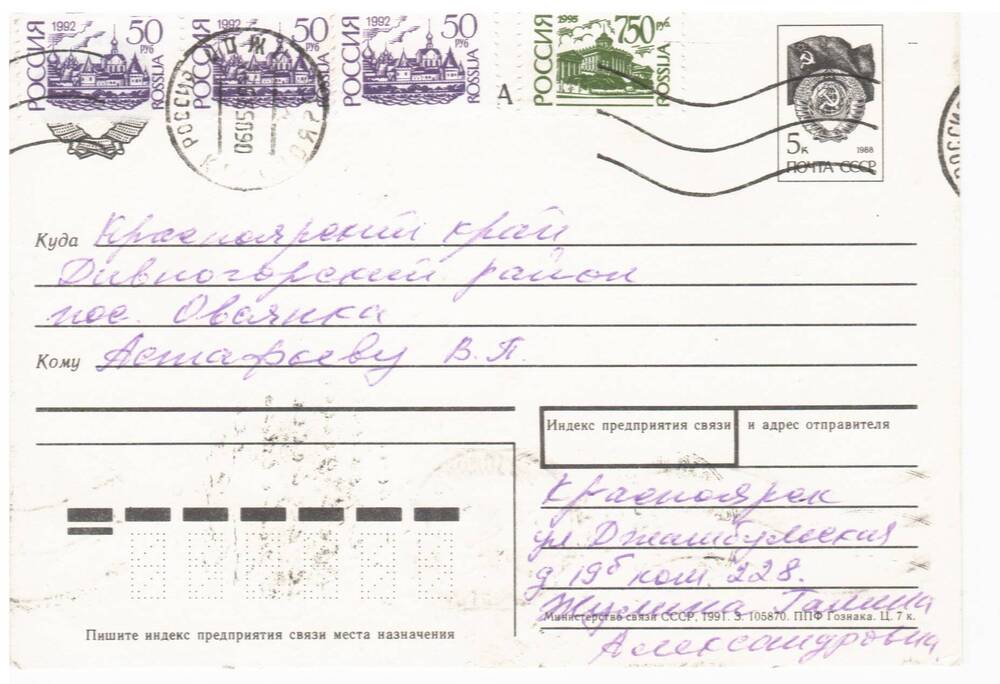 РОССИЯ 1992 50 РУБ ROSSIJA
РОССИЯ 1992 50 РУБ ROSSIJA
РОССИЯ 1992 50 РУБ ROSSIJA
А
РОССИЯ 1995 750 РУБ. ROSSIJA
5к 1988
ПОЧТА СССР
РОССИЯ
РОССИЯ
Куда Красноярский край
Дивногорский район
пос. Овсянка
Кому Астафьеву В.П.
Индекс предприятия связи и адрес отправителя
Красноярск
ул. Джамбульская
д 19б ком. 228.
Галина
Александровна
Министерство связи СССР, 1991. З. 105870. ППФ Гознака. Ц. 7 к.
Пишите индекс предприятия связи места назначения